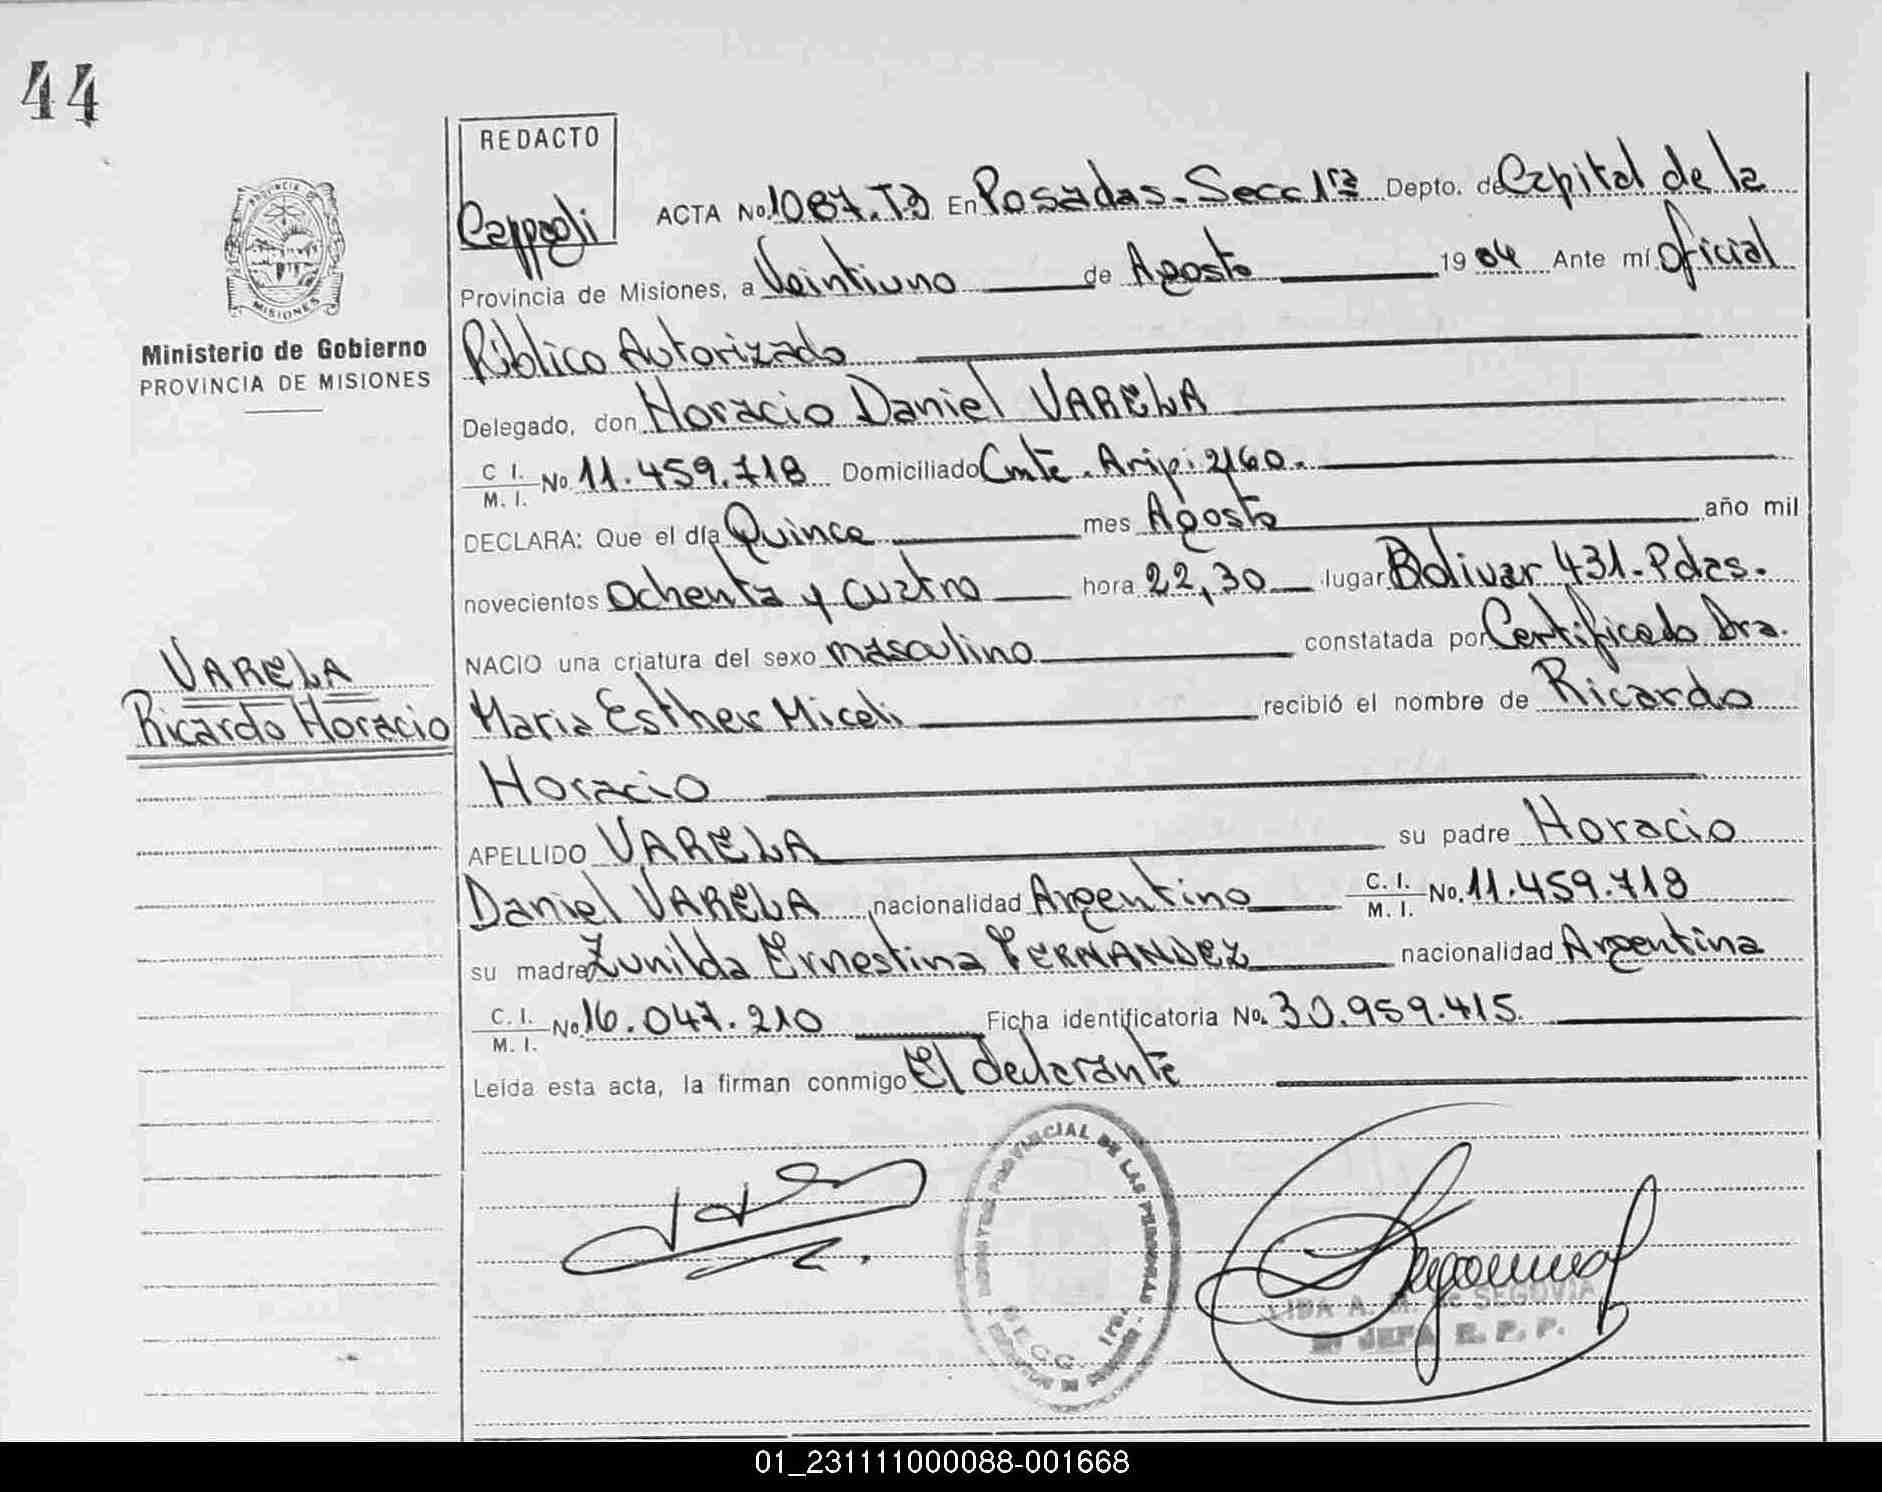 44
REDACTO
Cappoli
ACTA No. 1087.T3 En Posadas - Secc 1ra Depto. de Capital de la
Provincia de Misiones, a Veintiuno de Agosto 1984 Ante mí Oficial
Público Autorizado
Delegado, don Horacio Daniel VARELA
C I. / M. I. No. 11.459.718 Domiciliado Cmte. Aripi 2160.
DECLARA: Que el día Quince mes Agosto año mil
novecientos Ochenta y Cuatro hora 22,30 lugar Bolivar 431 - Pdas.
NACIO una criatura del sexo masculino constatada por Certificado Dra.
Maria Esther Miceli recibió el nombre de Ricardo
Horacio
APELLIDO VARELA su padre Horacio
Daniel VARELA nacionalidad Argentino C. I. / M. I. No. 11.459.718
su madre Zunilda Ernestina FERNANDEZ nacionalidad Argentina
C. I. / M. I. No. 16.047.210 Ficha identificatoria No. 30.959.415.
Leída esta acta, la firman conmigo El declarante
PROVINCIA DE MISIONES
Ministerio de Gobierno
PROVINCIA DE MISIONES
VARELA
Ricardo Horacio
PROVINCIAL DE LAS PERSONAS
SECC. 1ra.
LIDA A. M. de SEGOVIA
JEFA R. P. P.
01_231111000088-001668